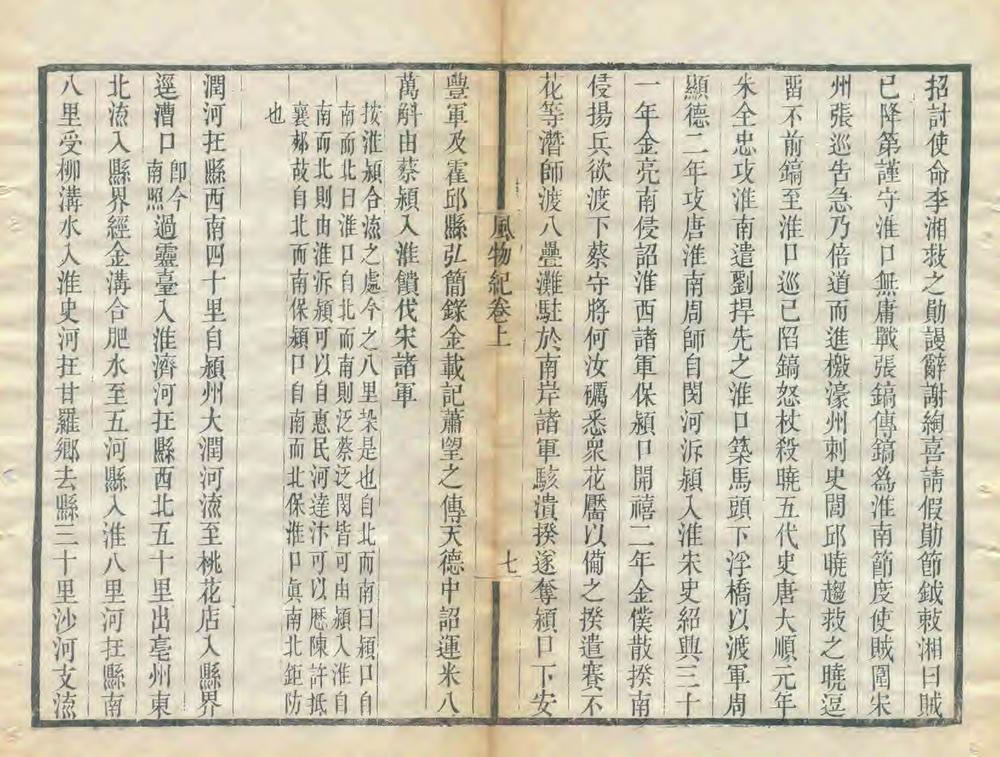 招討使命李湘救之勛謾辭謝絢喜請假勛節鉞敕湘曰賊
已降第謹守淮口無庸戰張鎬傳鎬為淮南節度使賊圍宋
州張巡告急乃倍道而進檄濠州刺史閭邱曉趨救之曉逗
畱不前鎬至淮口巡已陷鎬怒杖殺曉五代史唐大順元年
朱全忠攻淮南遣劉捍先之淮口築馬頭下浮橋以渡軍周
顯德二年攻唐淮南周師自閔河泝潁入淮宋史紹興三十
一年金亮南侵詔淮西諸軍保潁口開禧二年金僕散揆南
侵揚兵欲渡下蔡守將何汝礪悉衆花靨以備之揆遣賽不
花等潛師渡八疊灘駐於南岸諸軍駭潰揆遂奪潁口下安
風物紀卷上
七
豐軍及霍邱縣弘簡錄金載記蕭望之傳天德中詔運米八
萬斛由蔡潁入淮饋伐宋諸軍
按淮潁合流之處今之八里垜是也自北而南曰潁口自
南而北曰淮口自北而南則泛蔡泛閔皆可由潁入淮自
南而北則由淮泝潁可以自惠民河達汴可以歴陳許抵
襄郟故自北而南保潁口自南而北保淮口眞南北鉅防
也
潤河在縣西南四十里自潁州大潤河流至桃花店入縣界
逕漕口卽今南照過靈臺入淮濟河在縣西北五十里出亳州東
北流入縣界經金溝合肥水至五河縣入淮八里河在縣南
八里受柳溝水入淮史河在甘羅鄉去縣三十里沙河支流